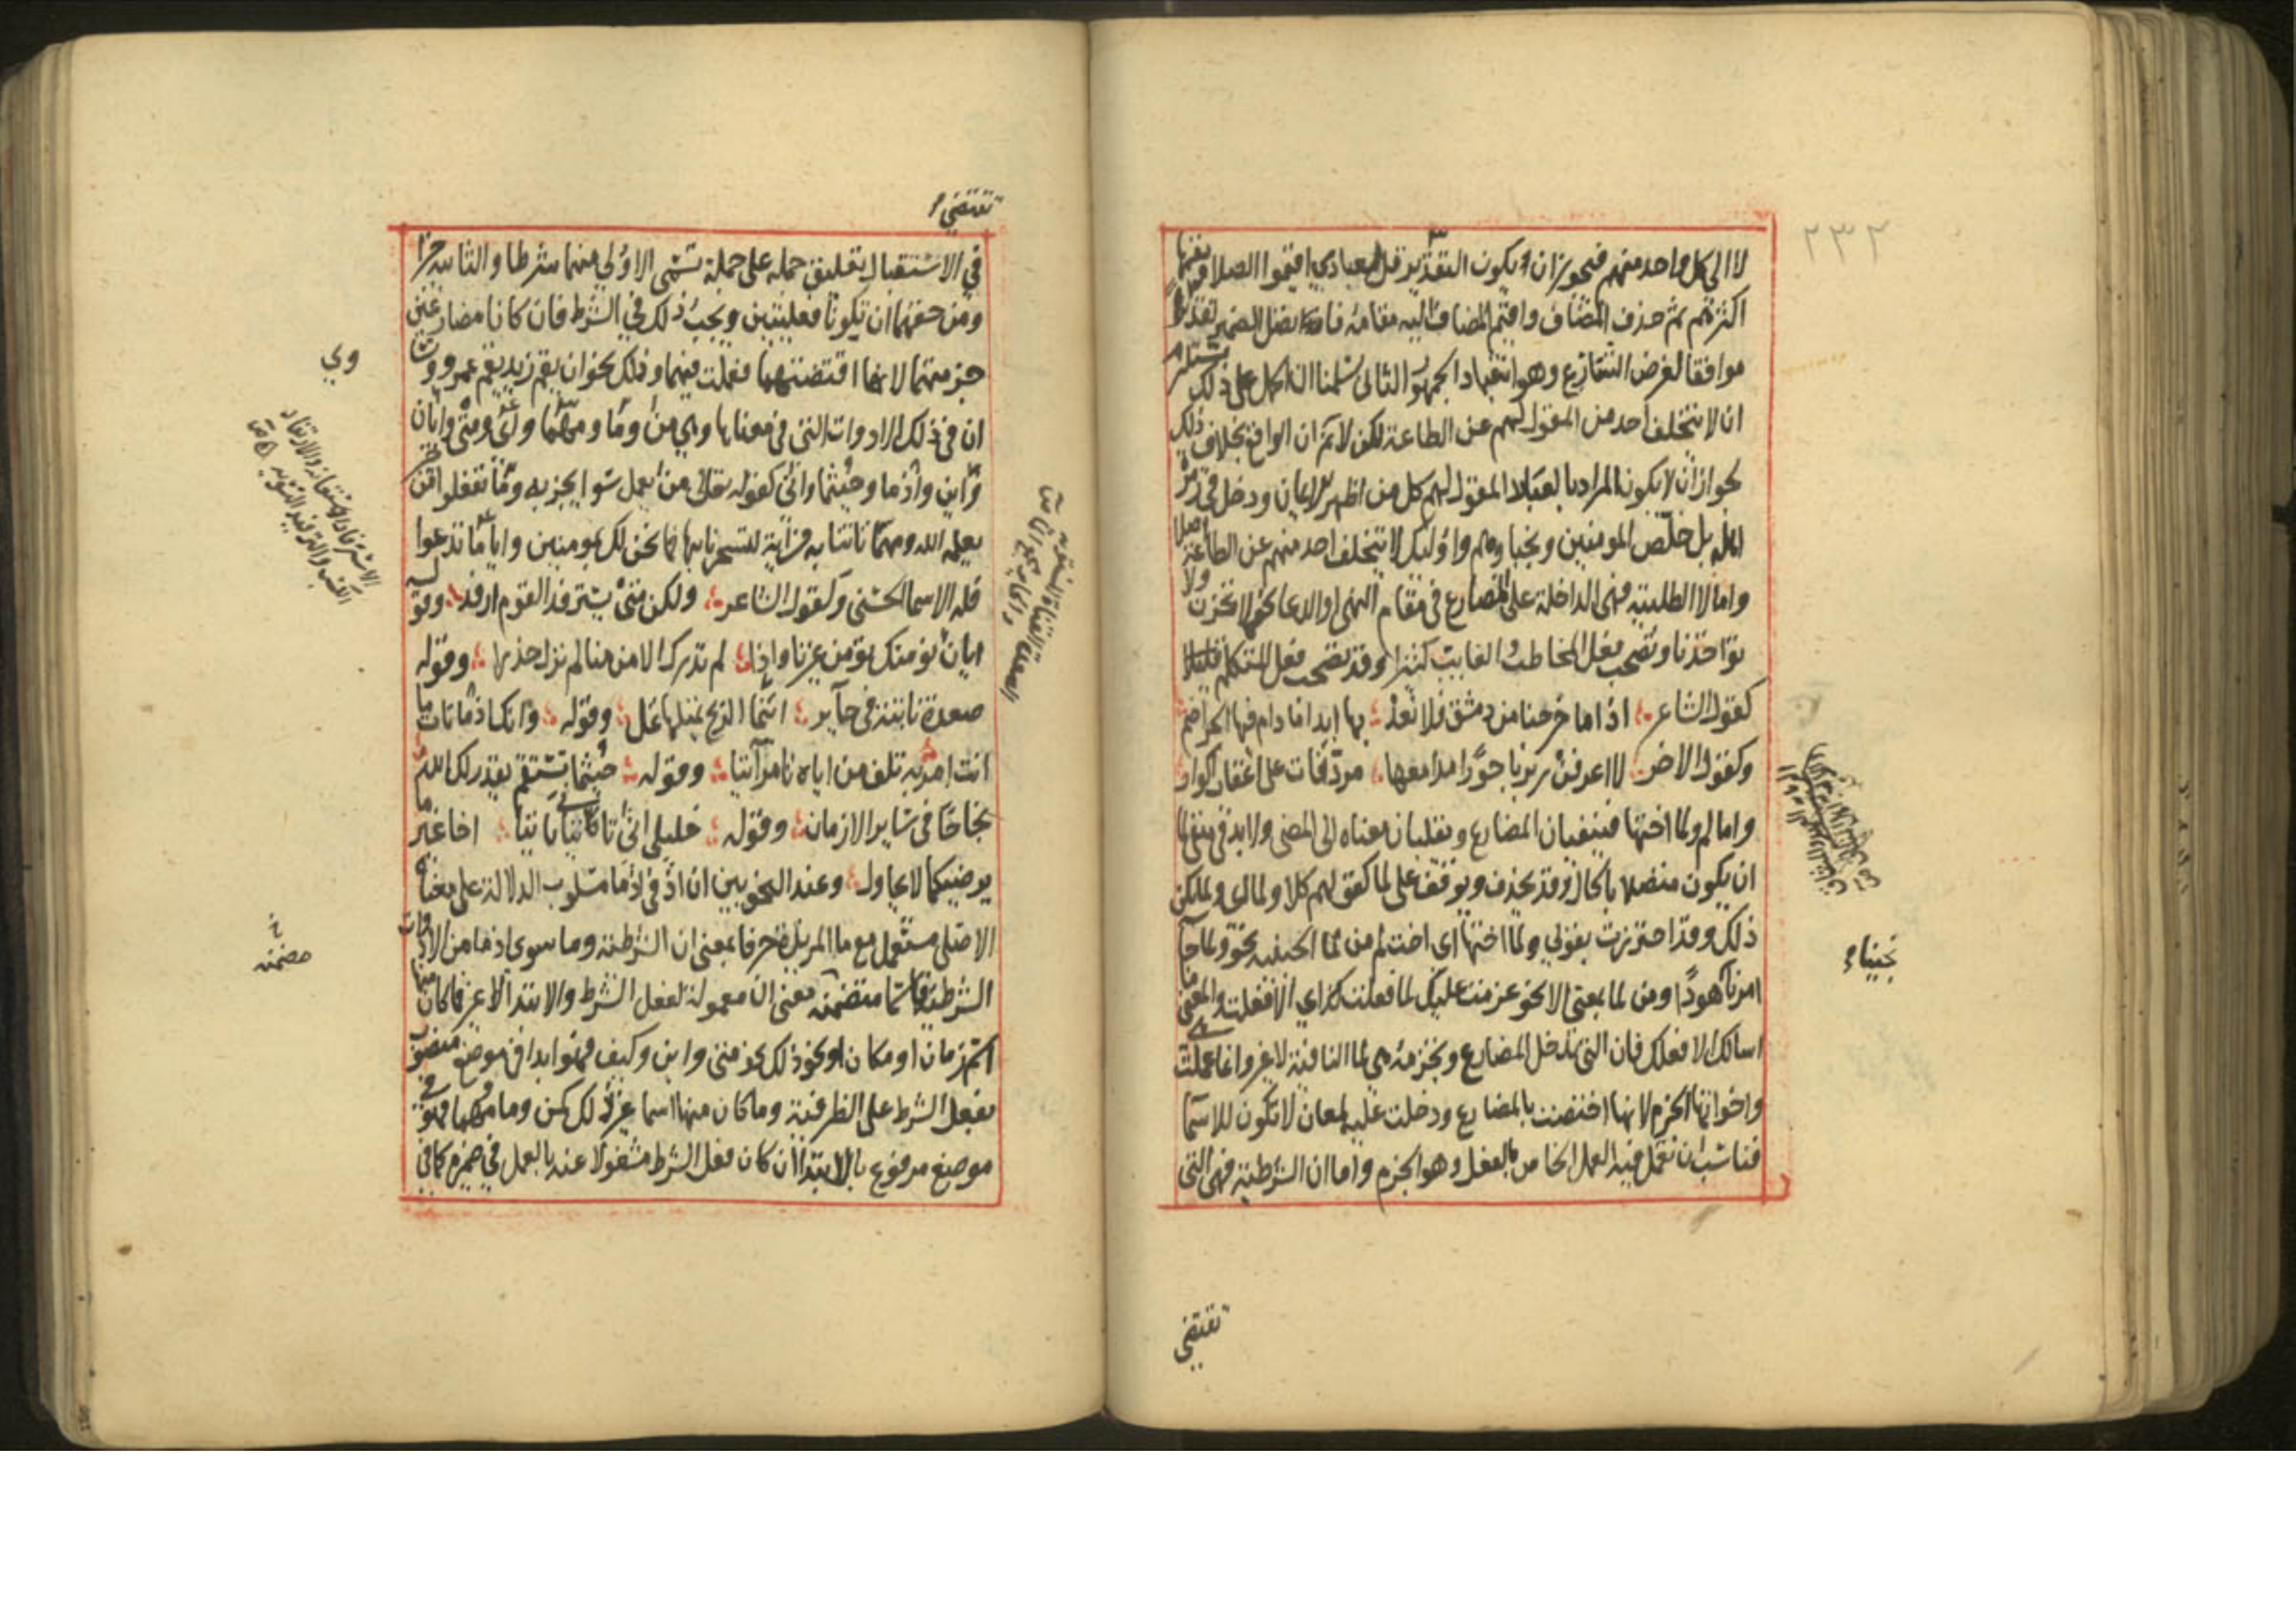 ٢٣٢
لا الى كل واحد منهم فيجوز ان يكون التقدير قل لعبادي اقيموا الصلاة يقمها
اكثرهم ثم حذف المضاف واقيم المضاف اليه مقامه فاتصل الضمير تقديرا
موافقا لغرض الشارع وهو انقياد الجمهور الثاني سلمنا ان الحمل على ذلك يستلزم
ان لا يتخلف احد من المقول لهم عن الطاعة لكن لا نم ان الواقع بخلاف ذلك
لجواز ان لا يكون المراد بالعباد المقول لهم كل من اظهر الايمان ودخل في زمرة
اهله بل خلص المومنين ونجباوهم واوليك لا يتخلف احد منهم عن الطاعة اصلا
واما لا الطلبية فهى الداخلة على المضارع في مقام النهى او الدعا نحو لا تحزن ولا
تواخذنا وتصحب فعل المخاطب والغايب كثيرا وقد تصحب فعل المتكلم قليلا
كقول الشاعر اذا ما خرجنا من دمشق فلا نعد بها ابدا ما دام فيها الجراضم
وكقول الاخر لا اعرفن ربربا حورا مدامعها مردفات على اعقاب اكوار
واما لم ولما اختها فينفيان المضارع ويقلبان معناه الى المضى ولا بد في منفى لما
ان يكون متصلا بالحال وقد يحذف ويوقف على لما كقولهم كلا ولما اى ولما يكن
ذلك وقد احترزت بقولي ولما اختها اى اخت لم من لما الحينية نحو ولما جا
امرنا هودا ومن لما بمعنى الا نحو عزمت عليك لما فعلت كذا اي الا فعلت والمعنى ما
اسالك الا فعلك فان التي تدخل المضارع وتجزمه هي لما النافية لا غير وانما عملت هي
واخواتها الجزم لانها اختصت بالمضارع ودخلت عليه لمعان لا تكون للاسما
فناسب ان تعمل فيه العمل الخاص بالفعل وهو الجزم واما ان الشرطية فهى التى
نجينا
تقتضي
تقتضي
في الاستقبال تعليق جملة على جملة تسمى الاولى منهما شرطا والثانية جزا
ومن حقهما ان تكونا فعليتين ويجب ذلك في الشرط فان كانا مضارعين
جزمتهما لانها اقتضتهما فعملت فيهما وذلك نحو ان يقم زيد يقم عمرو وساوت
ان في ذلك الادوات التي في معناها وهي من وما ومهما واى ومتى وايان
واين واذما وحيثما وانى كقوله تعالى من يعمل سوا يجز به وما تفعلوا من خير
يعلمه الله ومهما تاتنا به من آية لتسحرنا بها فما نحن لك بمومنين وايا ما تدعوا
فله الاسما الحسنى وكقول الشاعر ولكن متى يسترفد القوم ارفد وقوله
ايان نومنك تومن غيرنا واذا لم تدرك الامن منا لم تزل حذرا وقوله
صعدة نابتة في حاير اينما الريح تميلها تمل وقوله وانك اذما تات ما
انت امر به تلف من اياه تامر آتيا وقوله حيثما تستقم يقدر لك الله
نجاحا في ساير الازمان وقوله خليلي انى تاتياني تاتيا اخا غير ما
يرضيكما لا يحاول وعند النحويين ان اذ في اذما مسلوب الدلالة على معناه
الاصلى مستعمل مع ما المزيدة حرفا بمعنى ان الشرطية وما سوى اذما من الادوات
الشرطية فاسما متضمنة معنى ان معمولة لفعل الشرط والابتدا لا غير فما كان منها
اسم زمان او مكان او نحو ذلك نحو متى واين وكيف فهو ابدا في موضع منصوب
بفعل الشرط على الظرفية وما كان منها اسما غير ذلك كمن وما ومهما فهو في
موضع مرفوع بالابتدا ان كان فعل الشرط مشغولا عنه بالعمل في ضميره كما في
وي
مضمنه